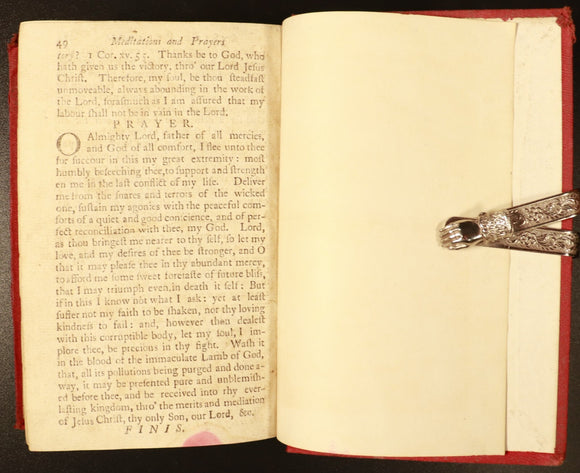 49 Meditations and Prayers
tory? 1 Cor. xv. 55. Thanks be to God, who
hath given us the victory, thro' our Lord Jesus
Christ. Therefore, my soul, be thou steadfast
unmoveable, always abounding in the work of
the Lord, forasmuch as I am assured that my
labour shall not be in vain in the Lord.
PRAYER.
O Almighty Lord, father of all mercies,
and God of all comfort, I flee unto thee
for succour in this my great extremity: most
humbly beseeching thee, to support and strength
en me in the last conflict of my life. Deliver
me from the snares and terrors of the wicked
one, sustain my agonies with the peaceful com-
forts of a quiet and good conscience, and of per-
fect reconciliation with thee, my God. Lord,
as thou bringest me nearer to thy self, so let my
love, and my desires of thee be stronger, and O
that it may please thee in thy abundant mercy,
to afford me some sweet foretaste of future bliss,
that I may triumph even in death it self: But
if in this I know not what I ask: yet at least
suffer not my faith to be shaken, nor thy loving
kindness to fail: and, however thou dealest
with this corruptible body, let my soul, I im-
plore thee, be precious in thy sight. Wash it
in the blood of the immaculate Lamb of God,
that, all its pollutions being purged and done a-
way, it may be presented pure and unblemish-
ed before thee, and be received into thy ever-
lasting kingdom, thro' the merits and mediation
of Jesus Christ, thy only Son, our Lord, &c.
FINIS.